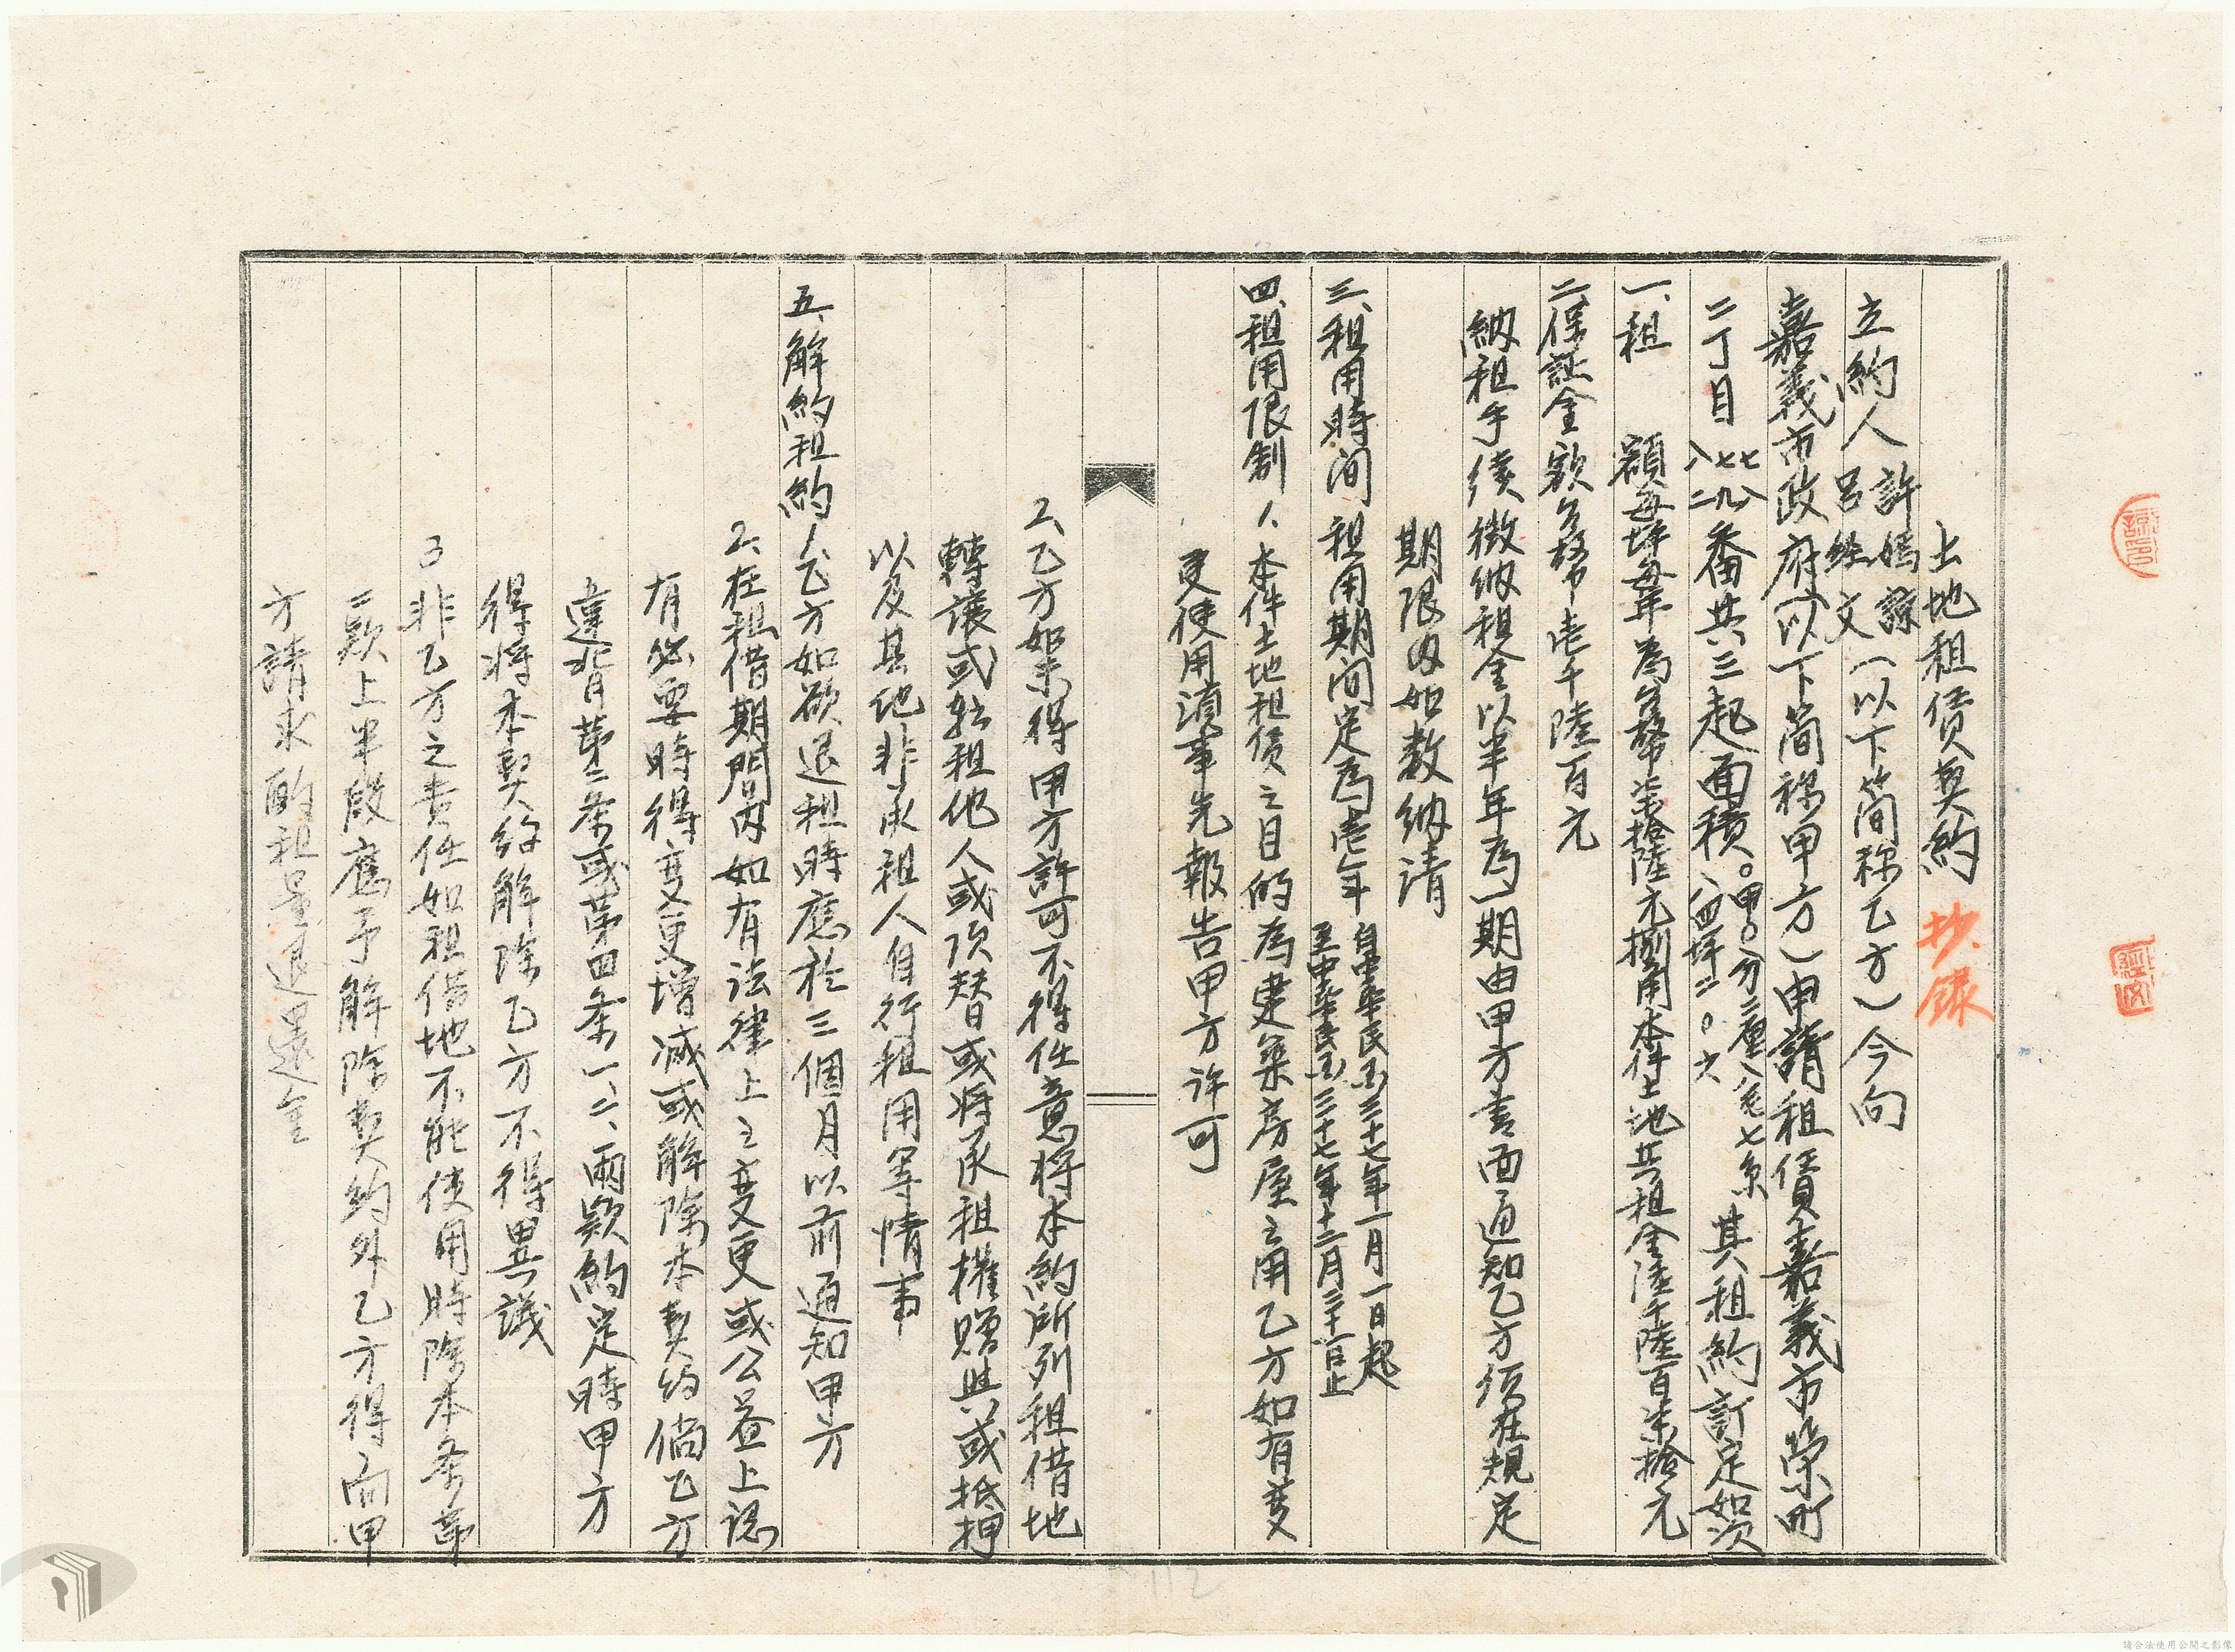 土地租賃契約 抄錄
立約人 許媽諒 呂經文 (以下簡称乙方) 今向
嘉義市政府(以下简称甲方)申請租賃嘉義市榮町
二丁目 七八 七九 八二 番共三起面積 。甲。分二厘八毛七糸 八四坪二。六 其租約訂定如次
一、租 額每坪每年為台幣柒拾陸元捌角本件土地共租金陸千陸百柒拾元
二、保証金額台幣壱千陸百元
納租手续徴納租金以半年為一期由甲方書面通知乙方須在規定
期限內如数納清
三、租用時间 租用期间定為壱年 自中華民国三十七年一月一日起 至中華民国三十七年十二月三十一日止
四、租用限制 1、本件土地租賃之目的為建築房屋之用乙方如有変
更使用須事先報告甲方许可
2、乙方如未得甲方許可不得任意将本約所列租借地
轉讓或転租他人或頂替或将承租權贈與或抵押
以及其他非承租人自行租用等情事
五、解約租約 1、乙方如欲退租時應於三個月以前通知甲方
2、在租借期間內如有法律上之変更或公益上認
有必要時得変更增减或解除本契约倘乙方
違背第二条或第四条一、二、兩款約定時甲方
得将本契约解除乙方不得異議
3 非乙方之責任如租借地不能使用時除本条第
二款上半段應予解除契约外乙方得向甲
方請求酌租量退還金
112
請合法使用公開之影像